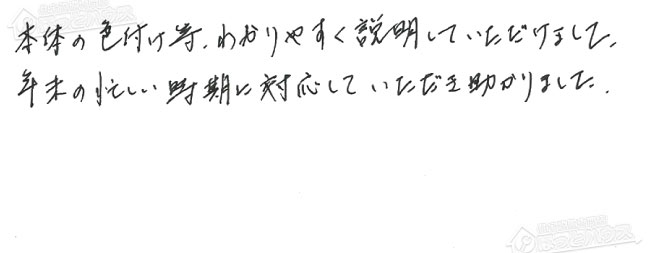 本体の色付け等、わかりやすく説明していただけました。
年末の忙しい時期に対応していただき助かりました。